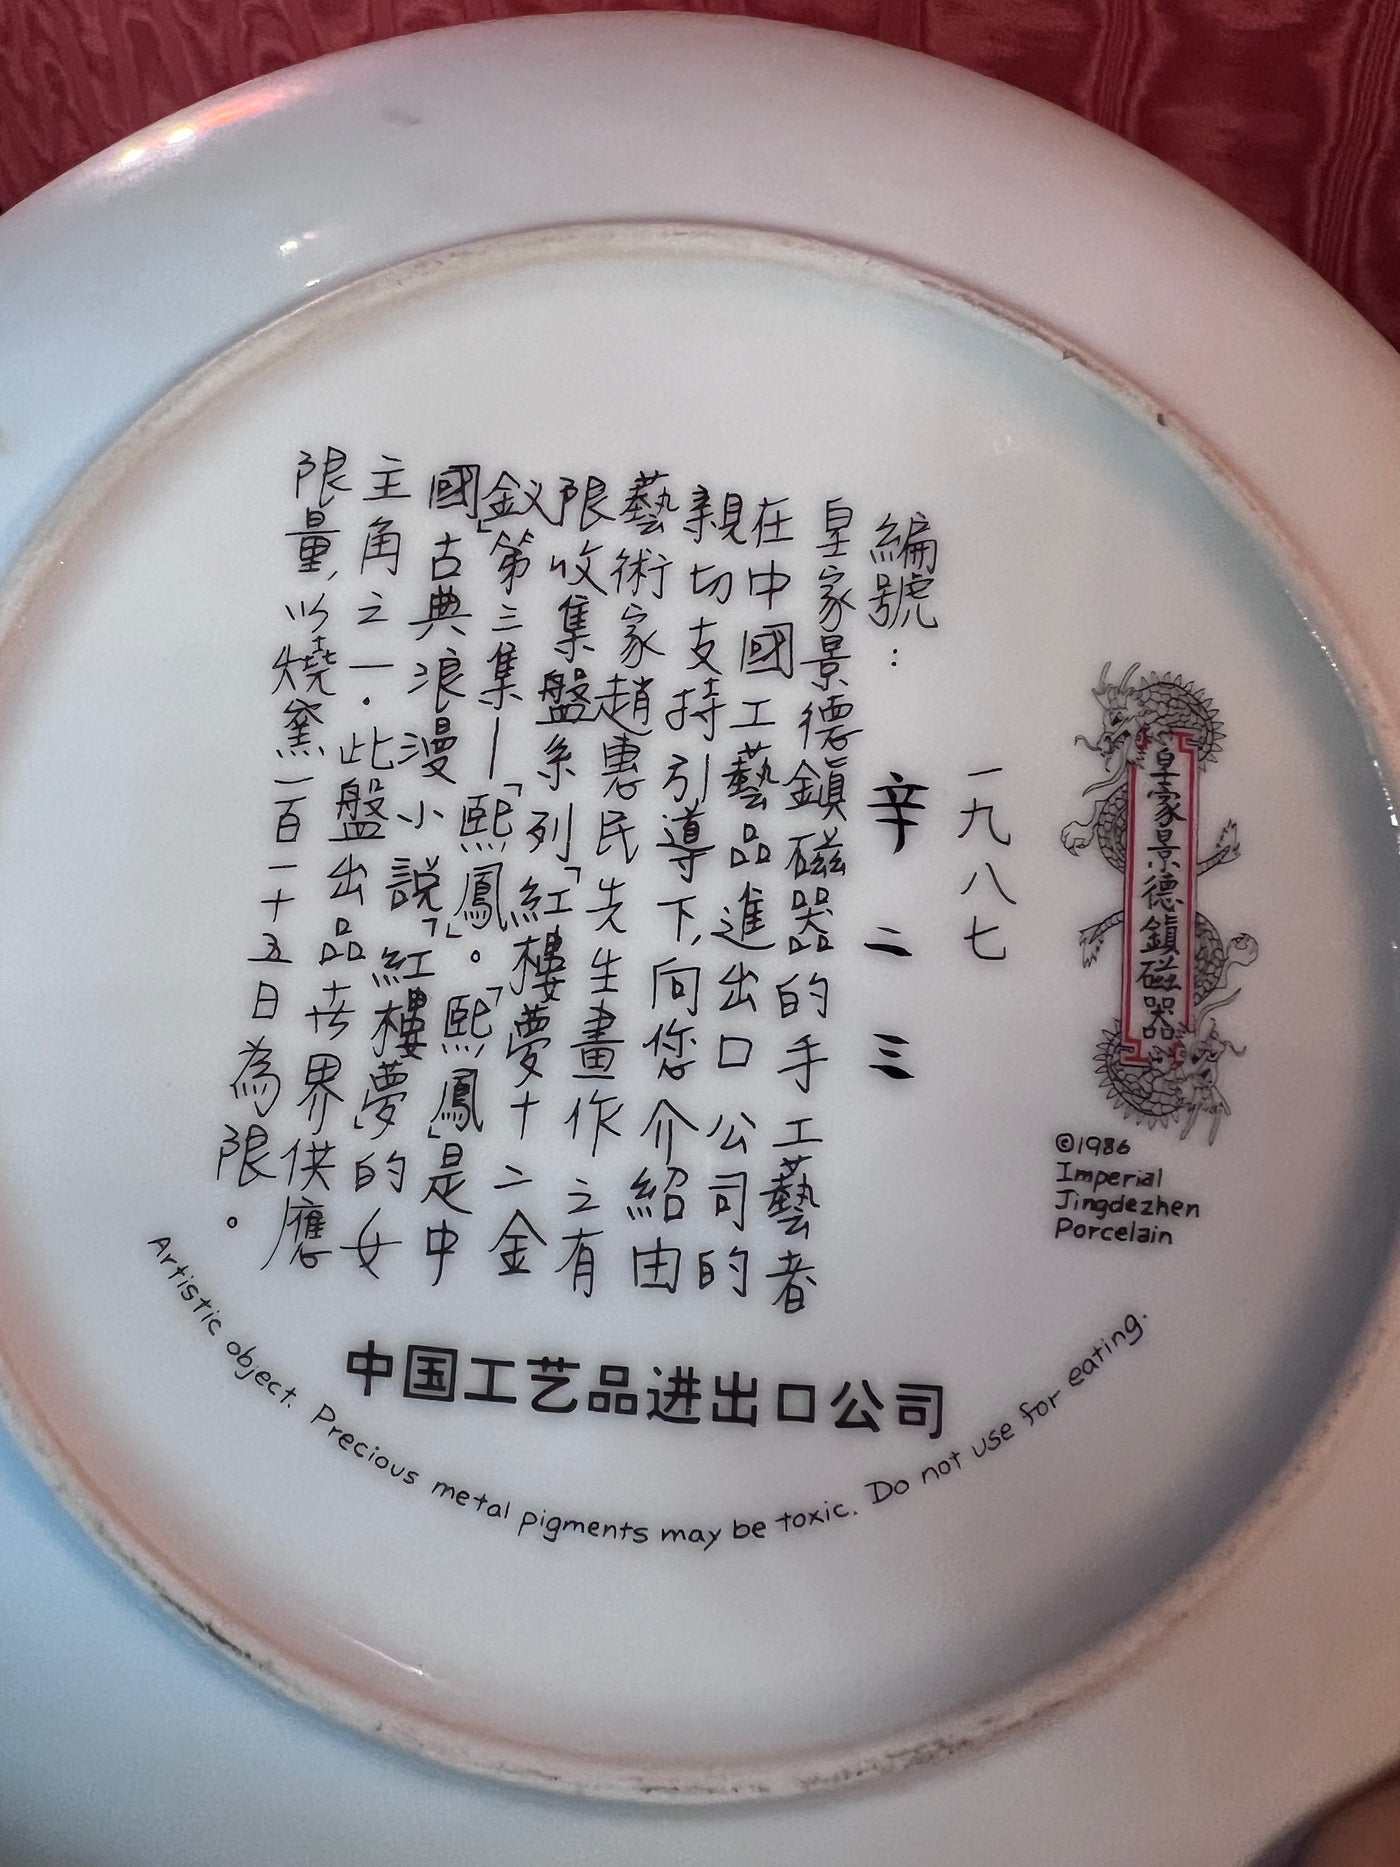 皇家景德鎮磁器
©1986
Imperial
Jingdezhen
Porcelain
一九八七
編號：辛二三
皇家景德鎮磁器的手工藝者
在中國工藝品進出口公司的
親切支持引導下,向您介紹由
藝術家趙惠民先生畫作之有
限收集盤系列「紅樓夢十二金
釵」第三集—「熙鳳」。「熙鳳」是中
國古典浪漫小說「紅樓夢」的女
主角之一.此盤出品世界供應
限量,以燒窯一百一十五日為限。
中国工艺品进出口公司
Artistic object. Precious metal pigments may be toxic. Do not use for eating.